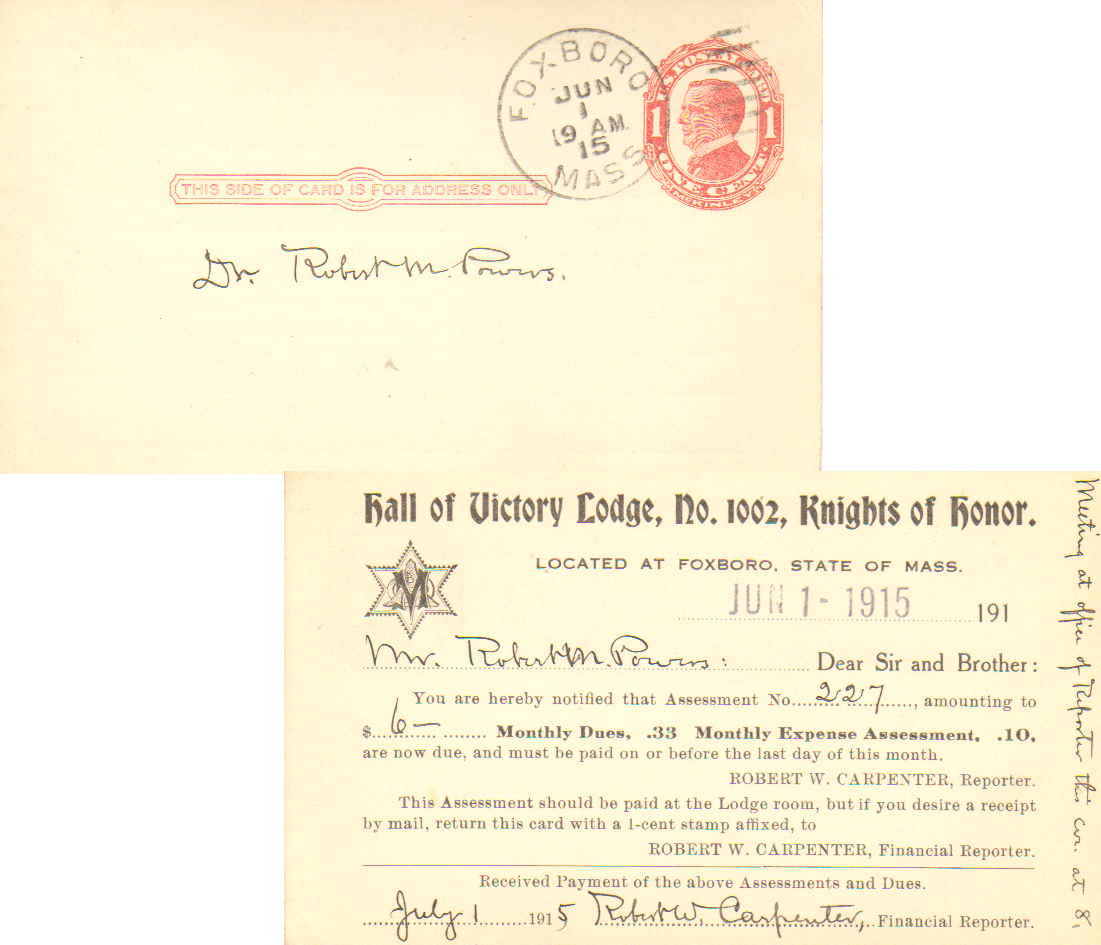 FOXBORO
JUN
1
9 AM
15
MASS
U.S. POSTAL CARD
1 1
ONE CENT
McKINLEY
THIS SIDE OF CARD IS FOR ADDRESS ONLY
Dr. Robert M. Powers.
Hall of Victory Lodge, No. 1002, Knights of Honor.
LOCATED AT FOXBORO, STATE OF MASS.
JUN 1 - 1915 191
M
Mr. Robert M. Powers: Dear Sir and Brother:
You are hereby notified that Assessment No. 227, amounting to
$ 6— Monthly Dues, .33 Monthly Expense Assessment, .10,
are now due, and must be paid on or before the last day of this month.
ROBERT W. CARPENTER, Reporter.
This Assessment should be paid at the Lodge room, but if you desire a receipt
by mail, return this card with a 1-cent stamp affixed, to
ROBERT W. CARPENTER, Financial Reporter.
Received Payment of the above Assessments and Dues.
July 1 1915 Robert W. Carpenter, Financial Reporter.
Meeting at office of Reporter this ev. at 8.